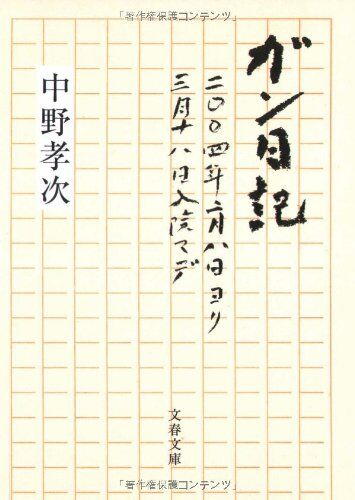 「著作権保護コンテンツ」
ガン日記
二〇〇四年二月八日ヨリ
三月十八日入院マデ
中野孝次
文春文庫
「著作権保護コンテンツ」